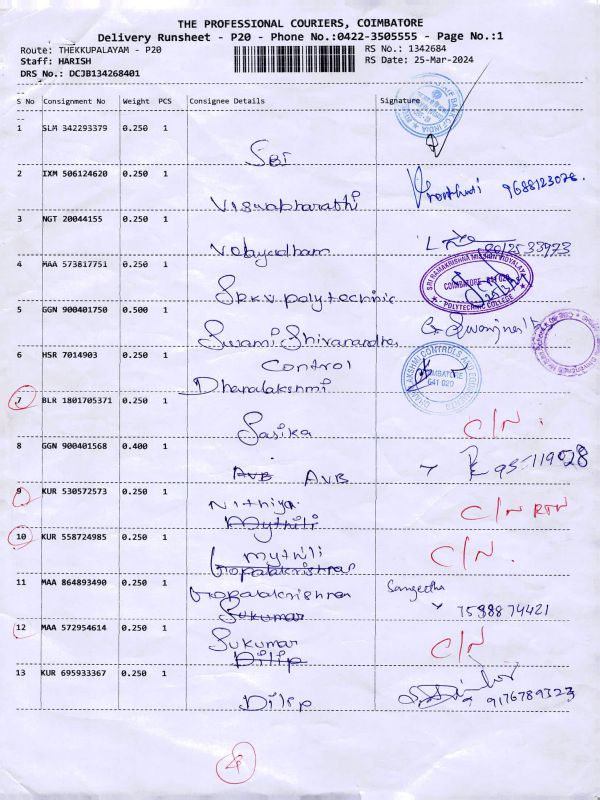 THE PROFESSIONAL COURIERS, COIMBATORE
Delivery Runsheet - P20 - Phone No.:0422-3505555 - Page No.:1
Route: THEKKUPALAYAM - P20 RS No.: 1342684
Staff: HARISH RS Date: 25-Mar-2024
DRS No.: DCJB134268401
S No Consignment No Weight PCS Consignee Details Signature
1 SLM 342293379 0.250 1
SBI
2 IXM 506124620 0.250 1
Viswabharathi 9688123078.
3 NGT 20044155 0.250 1
Velayudham
4 MAA 573817751 0.250 1
SRI RAMAKRISHNA MISSION VIDYALAYA
COIMBATORE - 641 020
POLYTECHNIC COLLEGE
S.R.K.V. polytechnic
5 GGN 900401750 0.500 1
Swami Shivanandha
6 HSR 7014903 0.250 1
Control
Dhanalakshmi
DHANALAKSHMI CONTROLS AND
COIMBATORE
641 020
7 BLR 1801705371 0.250 1
Sasika C/N.
8 GGN 900401568 0.400 1
AVB AVB
9 KUR 530572573 0.250 1
Nithiya. C/N RTN
Mythili
10 KUR 558724985 0.250 1
Mythili C/N.
Gopalakrishnan
11 MAA 864893490 0.250 1
Gopalakrishnan Sangeetha
Sukumar 7598874421
12 MAA 572954614 0.250 1
Sukumar C/N
Dilip
13 KUR 695933367 0.250 1
Dilip 9176789323
4